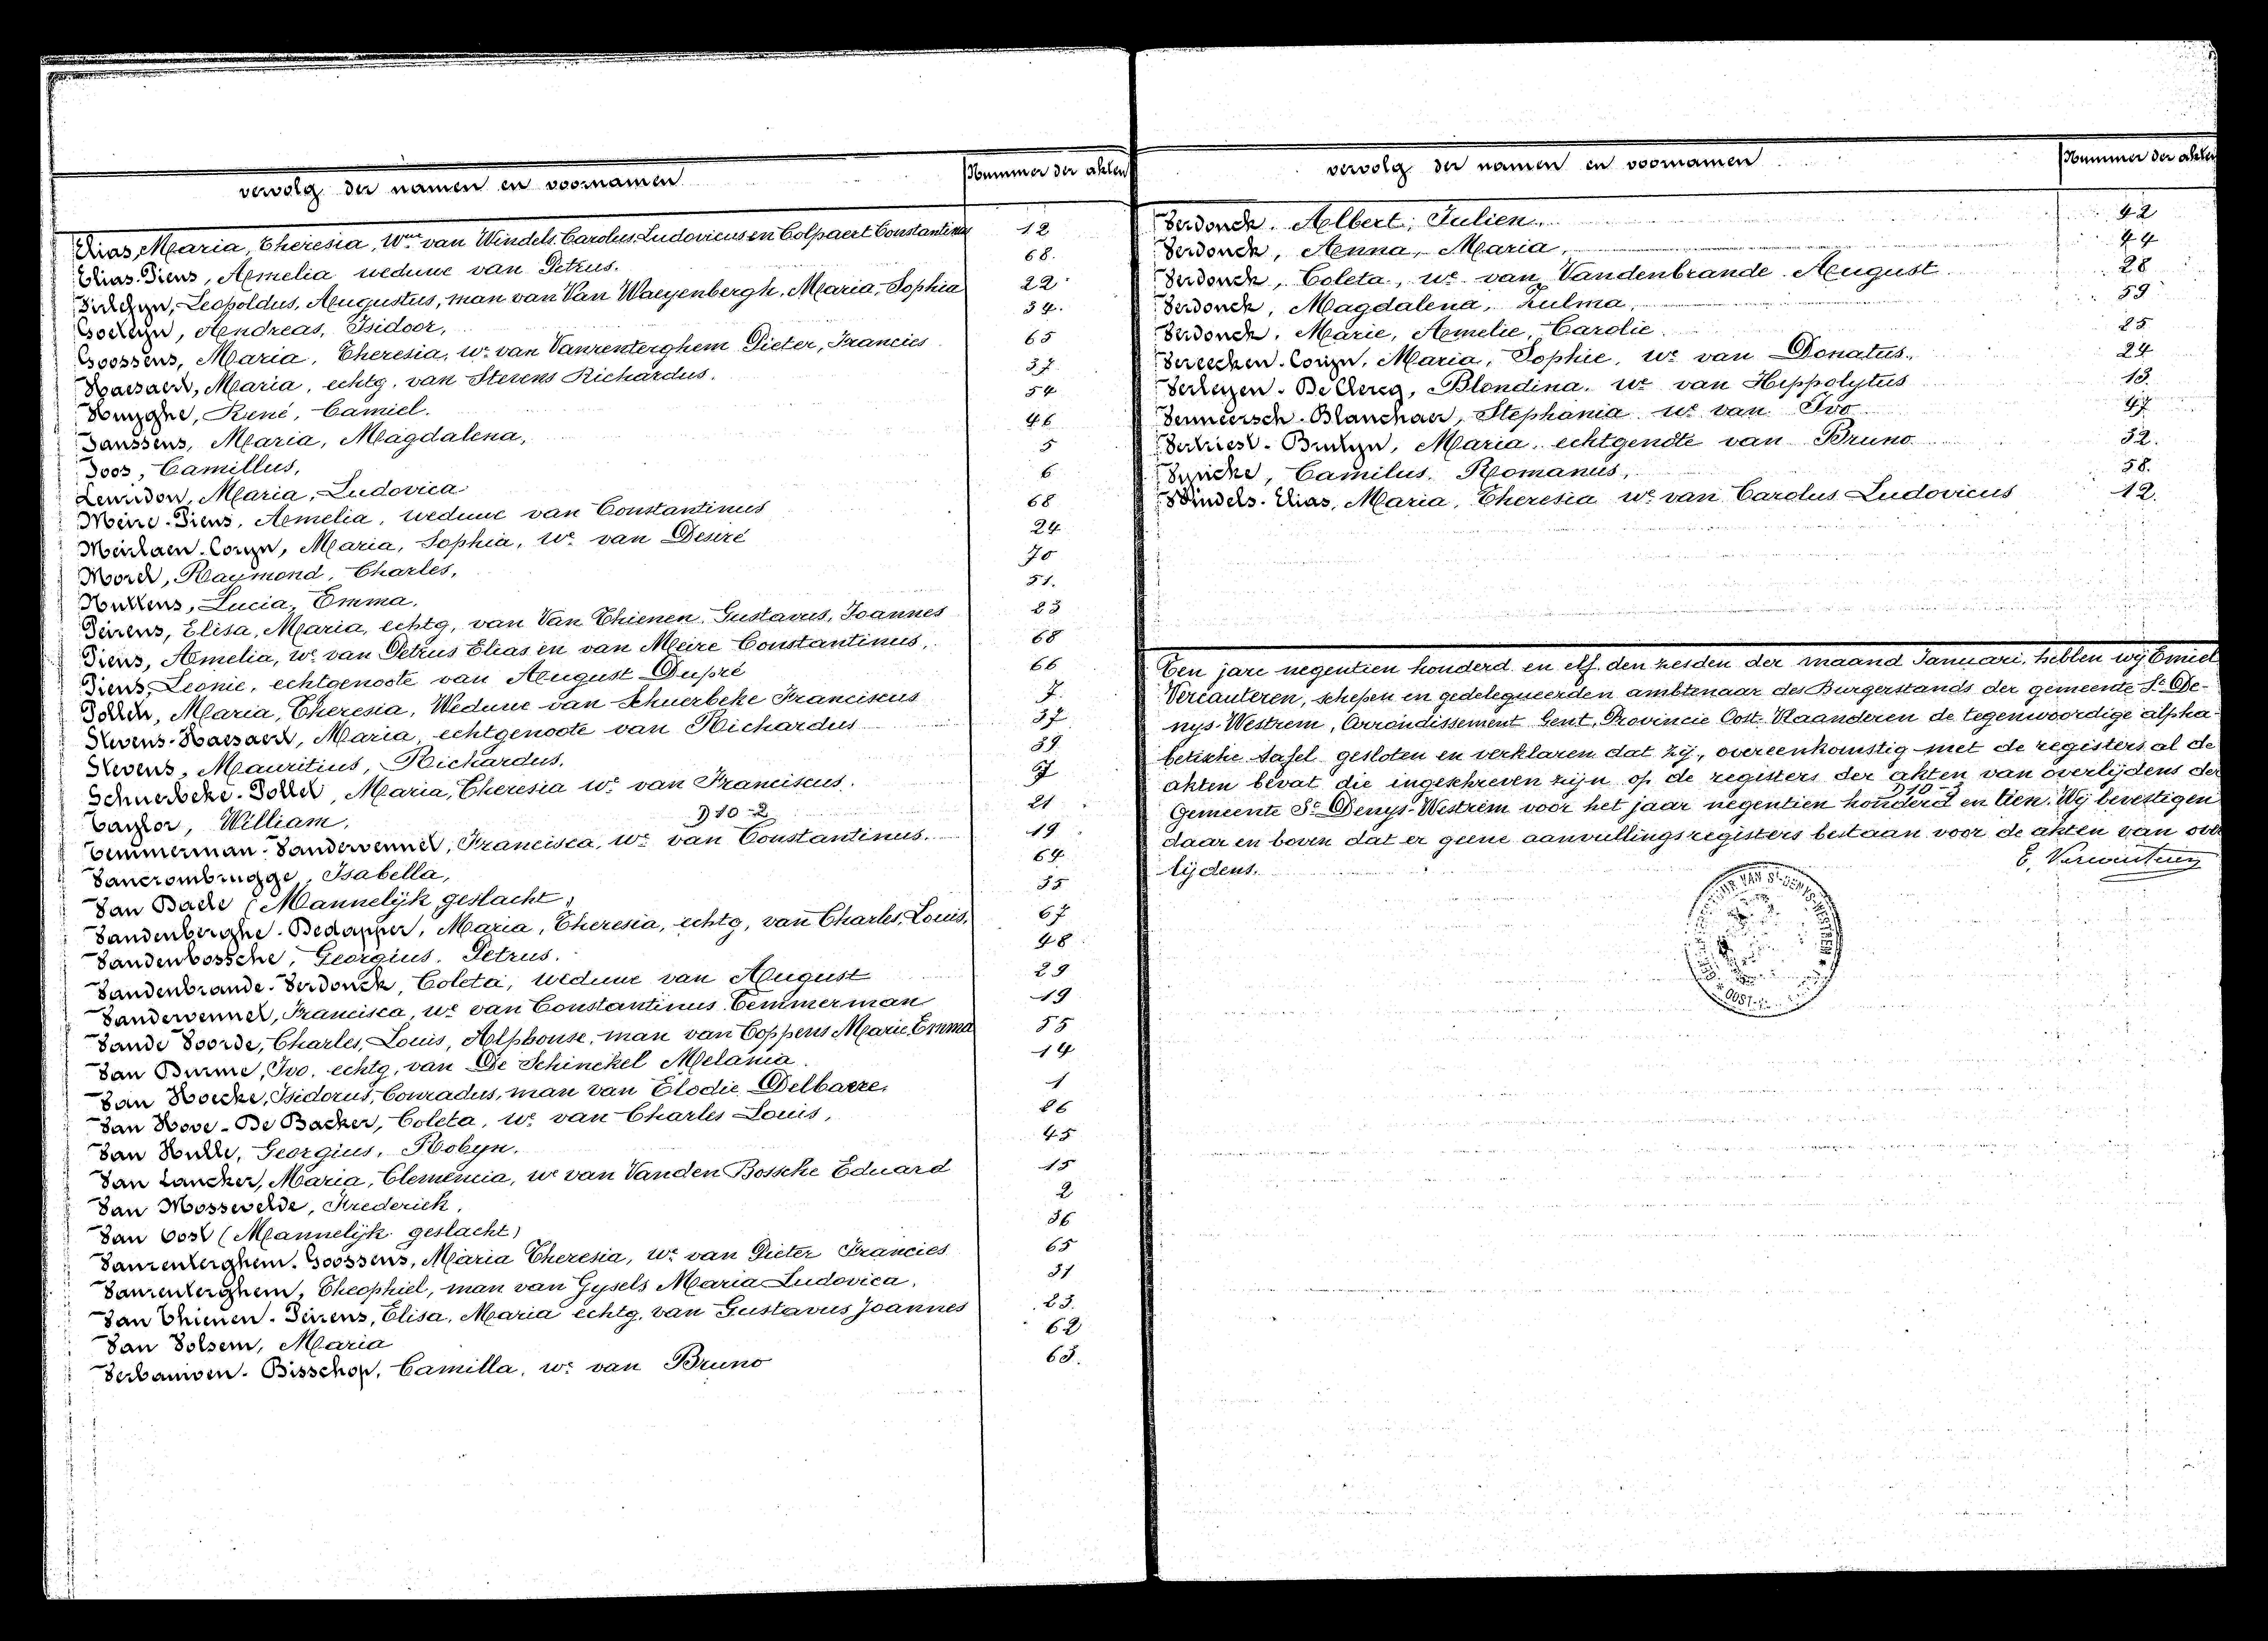 vervolg der namen en voornamen
Nummer der akten
Elias, Maria, Theresia, Wwe van Windels Carolus Ludovicus en Colpaert Constantinus 12
Elias-Piens, Amelia weduwe van Petrus. 68.
Leopoldus, Augustus, man van Van Waeyenbergh, Maria, Sophia 22
Goeteyn, Andreas, Isidoor, 34.
Goossens, Maria, Theresia, we van Vanrenterghem Pieter, Francies 65
Haesaert, Maria, echtg. van Stevens Richardus. 37
Huyghe, René, Camiel. 54
Janssens, Maria, Magdalena, 46
Joos, Camillus, 5
Leuridon, Maria, Ludovica 6
Meire-Piens, Amelia, weduwe van Constantinus 68
Meirlaen-Coryn, Maria, Sophia, we van Desiré 24
Morel, Raymond, Charles, 70
Nuttens, Lucia, Emma. 51.
Peirens, Elisa, Maria, echtg, van Van Thienen, Gustavus, Joannes 23
Piens, Amelia, we van Petrus Elias en van Meire Constantinus, 68
Piens, Leonie, echtgenoote van August Dupré 66
Pollet, Maria, Theresia, Weduwe van Schuerbeke Franciscus 7.
Stevens-Haesaert, Maria, echtgenoote van Richardus 37
Stevens, Mauritius, Richardus. 39
Schuerbeke-Pollet, Maria, Theresia we van Franciscus. 7
Taylor, William. 21
D 10-2
Temmerman-Vandervennet, Francisca, we van Constantinus. 19
Vancrombrugge, Isabella, 64
Van Daele (Mannelijk geslacht) 35
Vandenberghe-Bedapper, Maria, Theresia, echtg, van Charles, Louis, 67
Vandenbossche, Georgius, Petrus. 48
Vandenbrande-Verdonck, Coleta, weduwe van August 29
Vandervennet, Francisca, we van Constantinus Temmerman 19
Vande Voorde, Charles, Louis, Alphonse, man van Coppens Marie Emma 55
Van Durme, Ivo, echtg, van De Schinckel Melania. 14
Van Hoecke, Isidorus, Conradus, man van Elodie Delbaere. 1
Van Hove-De Backer, Coleta, we van Charles Louis, 26
Van Hulle, Georgius, Robyn. 45
Van Lancker, Maria, Clemencia, we van Vanden Bossche Eduard 15
Van Mossevelde, Frederick, 2
Van Oost (Mannelijk geslacht) 36
Vanrenterghem-Goossens, Maria Theresia, we van Pieter Francies 65
Vanrenterghem, Theophiel, man van Gysels Maria Ludovica. 31
Van Thienen-Peirens, Elisa, Maria echtg. van Gustavus Joannes 23.
Van Volsem, Maria 62
Verbauwen-Bisschop, Camilla, we van Bruno 63.
vervolg der namen en voornamen
Nummer der akten
Verdonck, Albert, Julien. 42
Verdonck, Anna, Maria, 44
Verdonck, Coleta, we van Vandenbrande August 28
Verdonck, Magdalena, Zulma, 59
Verdonck, Marie, Amelie, Carolie. 25
Vereecken-Coryn, Maria, Sophie, we van Donatus. 24
Verheyen-De Clercq, Blondina, we van Hippolytus 13.
Vermeersch-Blanchaer, Stephania we van Ivo 47
Vertriest-Bruteyn, Maria, echtgenote van Bruno 32.
Vyncke, Camilus, Romanus, 58.
Windels-Elias, Maria, Theresia we van Carolus Ludovicus 12.
Ten jare negentien honderd en elf den zesden der maand Januari, hebben wij Emiel
Vercauteren, schepen en gedelegueerden ambtenaar des Burgerstands der gemeente St De-
nys-Westrem, Arrondissement Gent, Provincie Oost-Vlaanderen de tegenwoordige alpha-
betische tafel gesloten en verklaren dat zij, overeenkomstig met de registers al de
akten bevat die ingeschreven zijn op de registers der akten van overlijdens der
D10-2
Gemeente St Denys-Westrem voor het jaar negentien honderd en tien. Wij bevestigen
daar en boven dat er geene aanvullingsregisters bestaan voor de akten van over
lijdens.
E. Vercauteren